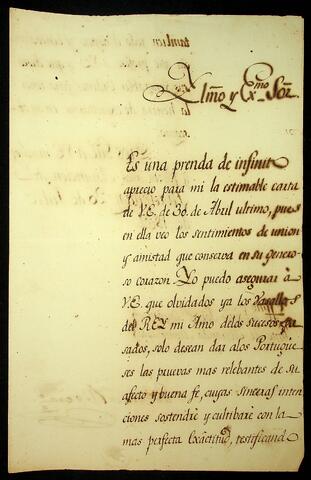 Yltño y Exmo Sor.
Es una prenda de infinito
aprecio para mi la estimable carta
de V.E. de 30. de Abril ultimo, pues
en ella veo los sentimientos de union
y amistad que conserva en su genero-
so corazon. Yo puedo asegurar à
V.E. que olvidados ya los Vasallos
del REY mi Amo delos sucesos pa-
sados, solo desean dar alos Portugue-
ses las pruevas mas relebantes de su
afecto y buena fe, cuyas sinceras inten
ciones sostendrè y cultibarè con la
mas perfecta Exâctitud, testificand